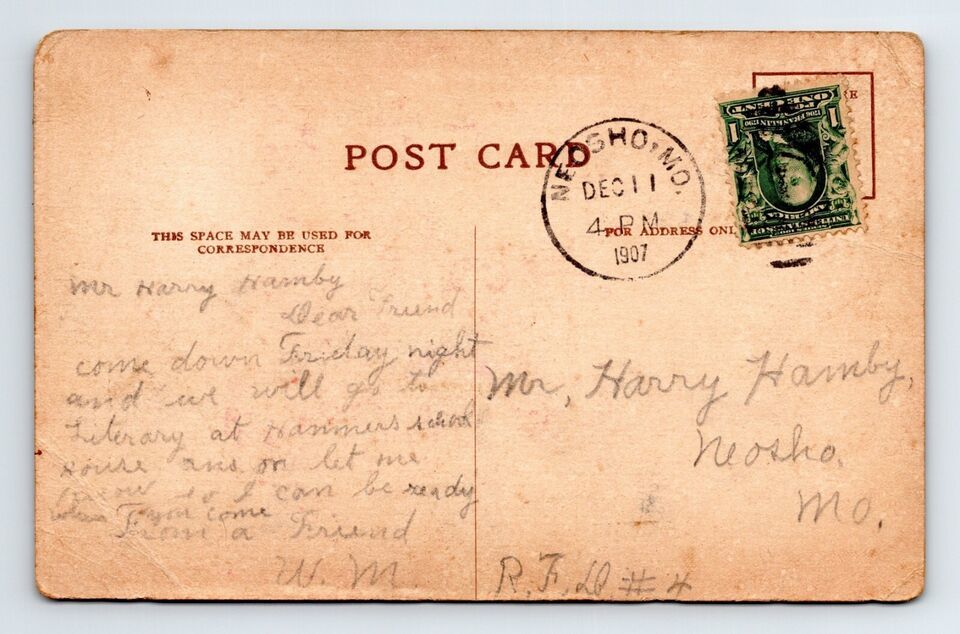 POST CARD
THIS SPACE MAY BE USED FOR
CORRESPONDENCE
FOR ADDRESS ONL
NEOSHO, MO.
DEC 11
4-PM
1907
ONE CENT
1 1
FRANKLIN
SERIES 1902
UNITED STATES OF
AMERICA
E
Mr Harry Hamby
Dear Friend
come down Friday night
and we will go to
Literary at Hanmers school
house ans on let me
know so I can be ready
when you come
From a Friend
W. M.
Mr, Harry Hamby,
Neosho,
Mo.
R.F.D #4